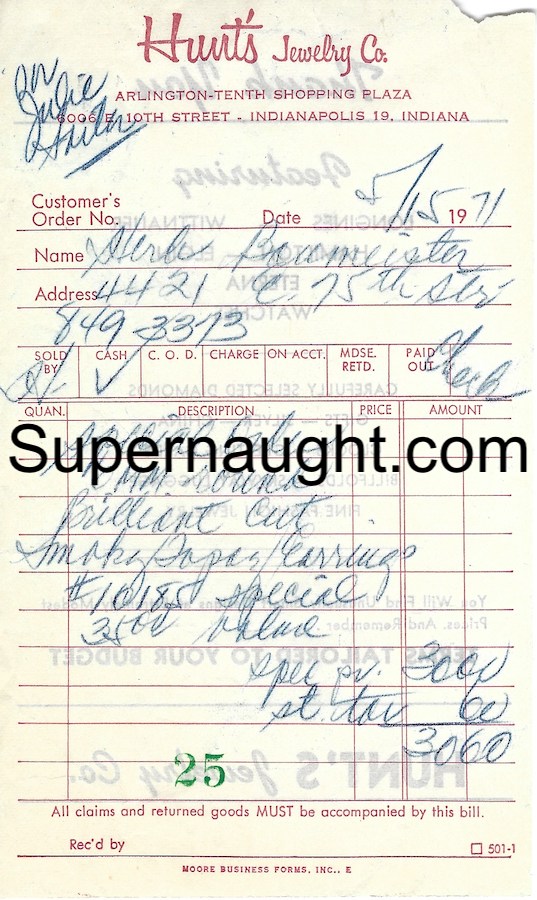 Hunt's Jewelry Co.
ARLINGTON-TENTH SHOPPING PLAZA
6006 E. 10TH STREET - INDIANAPOLIS 19, INDIANA
Julie
Customer's
Order No. Date 5/15 1971
Name Herb Baumeister
Address 4421 E. 75th Str
849-3373
SOLD BY CASH C. O. D. CHARGE ON ACCT. MDSE. RETD. PAID OUT
✓ Check
QUAN. DESCRIPTION PRICE AMOUNT
Supernaught.com
MM round
Brilliant Cut
Smoky Topaz Earrings
#10185 special
3500 value
spec pr. 3000
st. tax 60
3060
25
All claims and returned goods MUST be accompanied by this bill.
Rec'd by 501-1
MOORE BUSINESS FORMS, INC., E